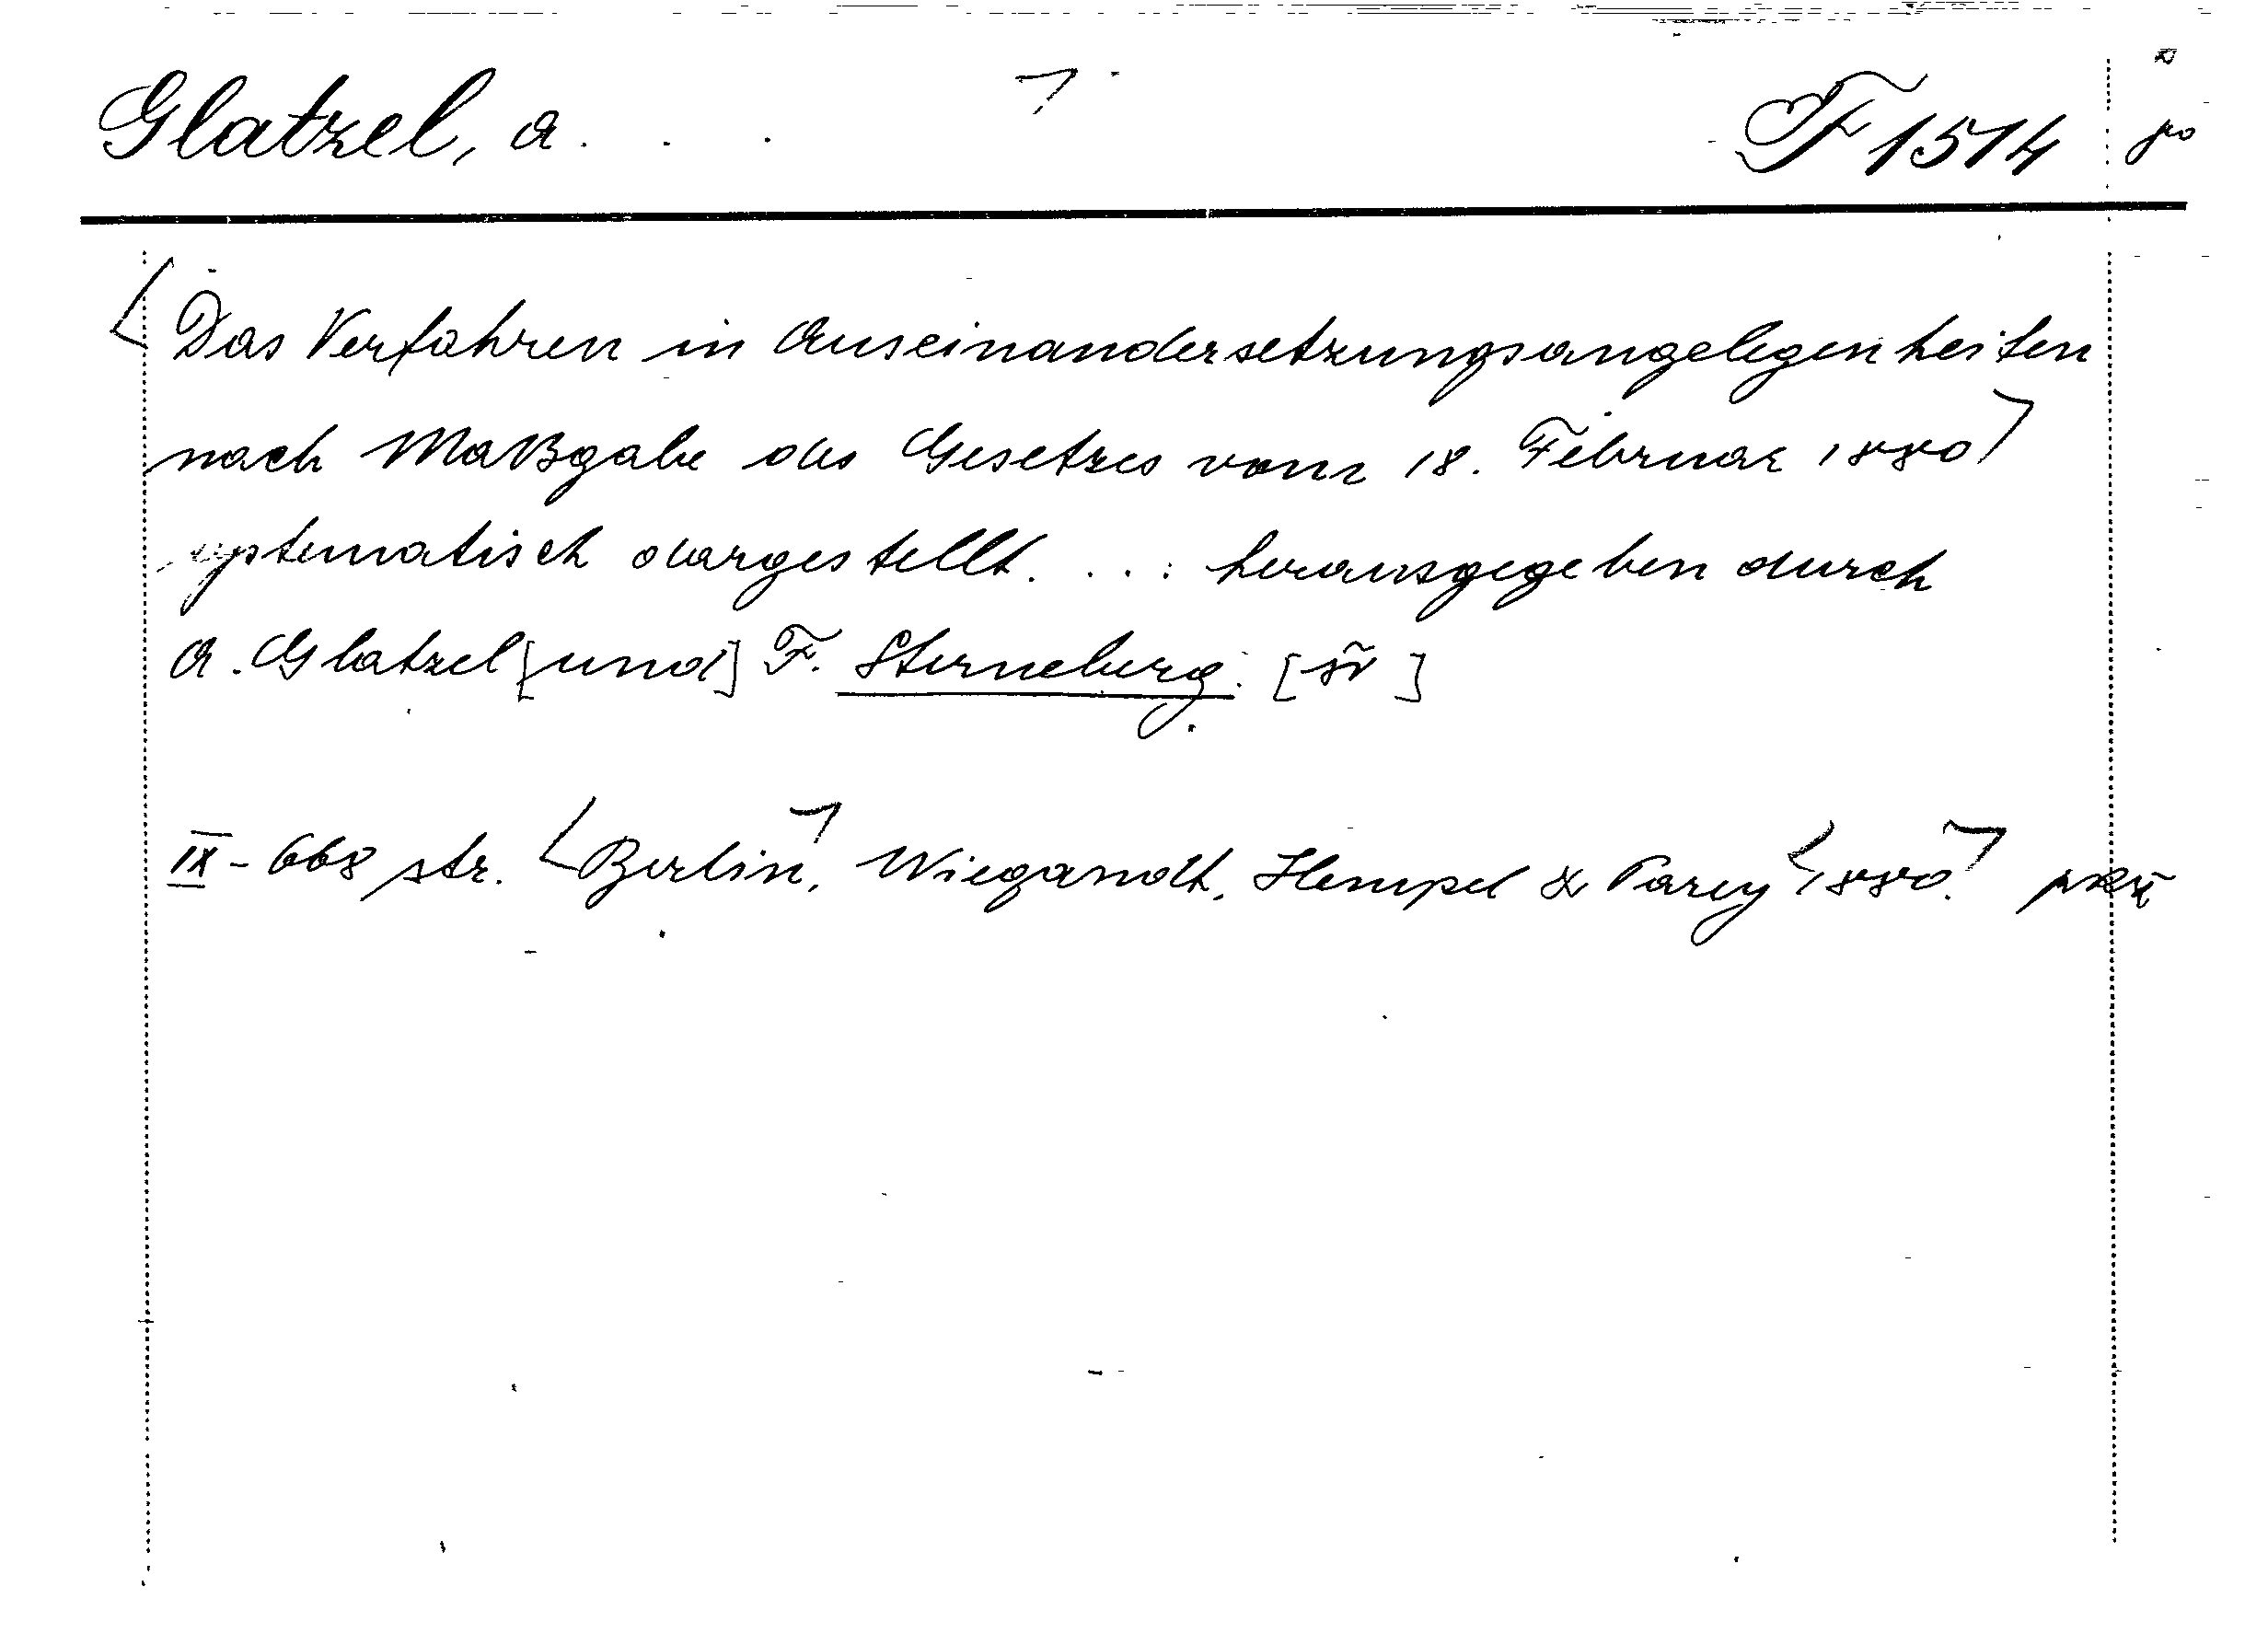 Glatzel, A. . . F 1514
Das Verfahren in Auseinandersetzungsangelegenheiten
nach Maßgabe des Gesetzes vom 18. Februar 1880
systematisch dargestellt. . . : herausgegeben durch
A. Glatzel [und] F. Sterneberg.
IX - 668 str. Berlin, Wiegandt, Hempel & Parey 1880.